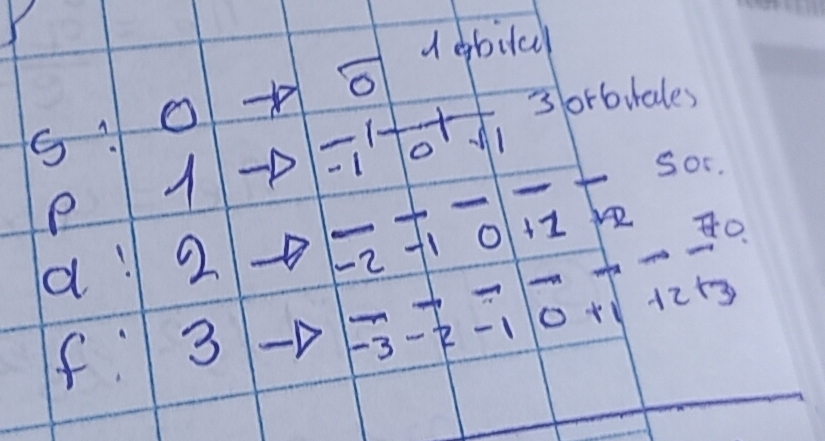 s: 0 → 0 1 orbital
p 1 → -1 0 +1 3 orbitales
d: 2 → -2 -1 0 +1 +2 5 or.
f: 3 → -3 -2 -1 0 +1 +2 +3 7 o.